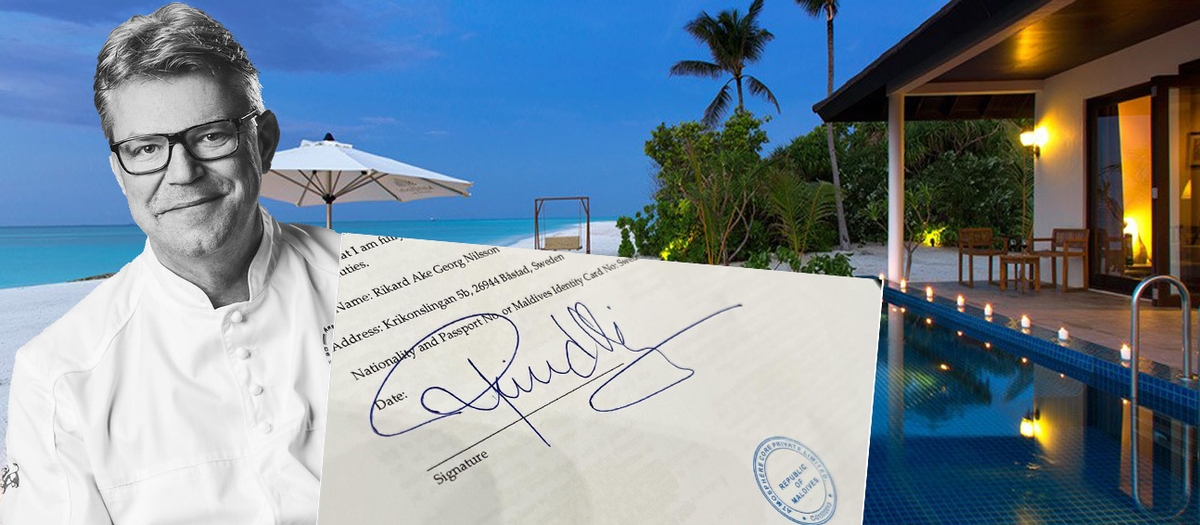 at I am fully
uties.
Name: Rikard Ake Georg Nilsson
Address: Krikonslingan 5b, 26944 Båstad, Sweden
Nationality and Passport No or Maldives Identity Card No: Swe
Date:
Signature
ATMOSPHERE CORE PRIVATE LIMITED
REPUBLIC
OF
MALDIVES